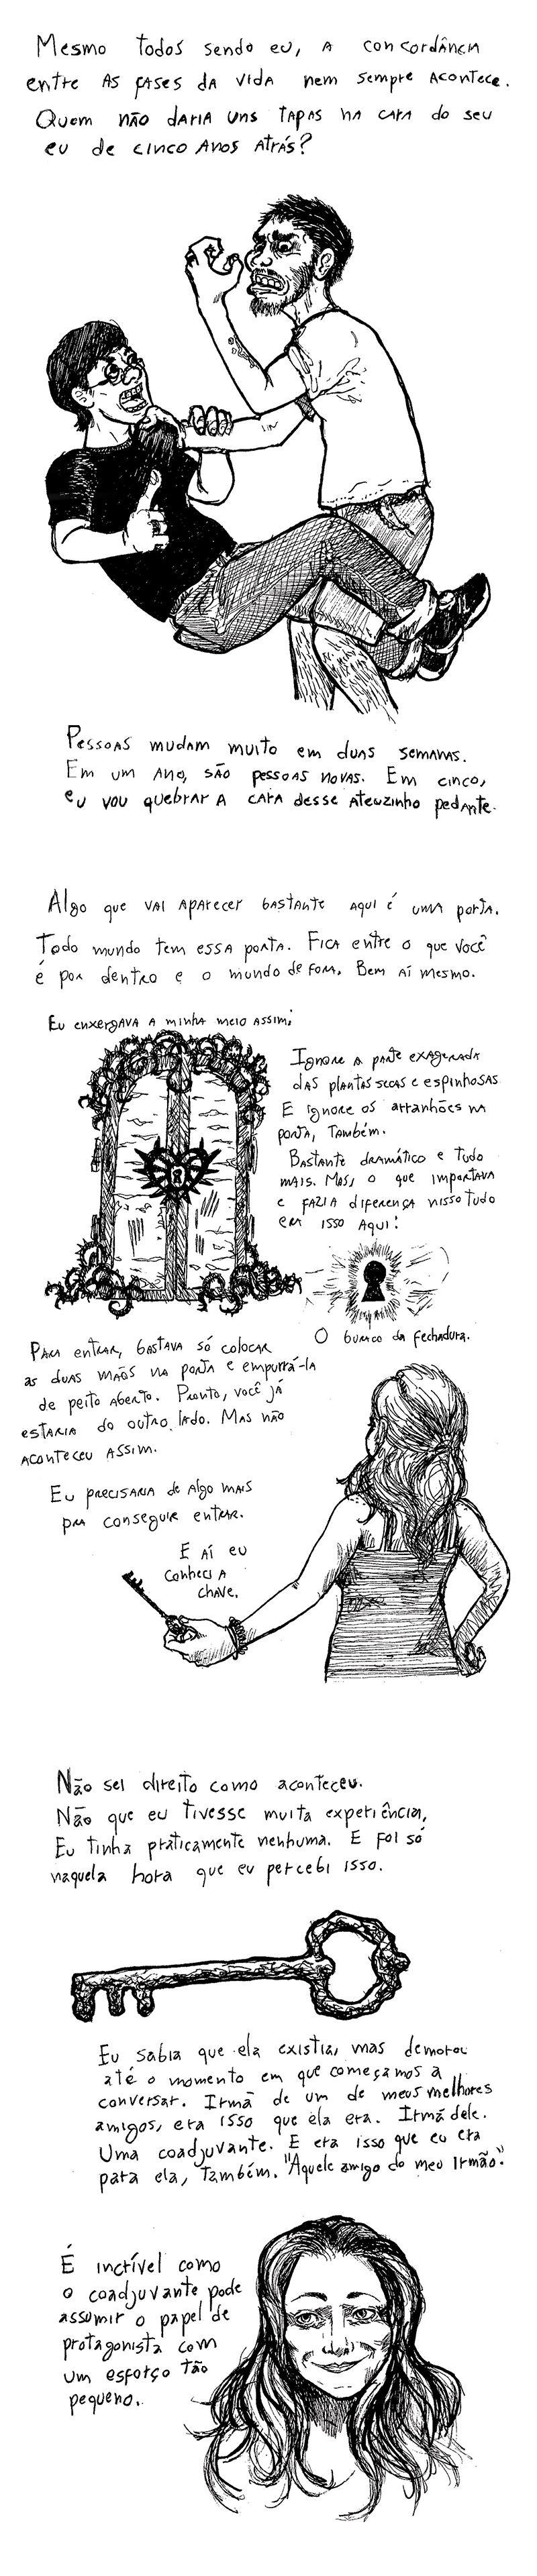 Mesmo todos sendo eu, a concordância
entre as fases da vida nem sempre acontece.
Quem não daria uns tapas na cara do seu
eu de cinco anos atrás?
Pessoas mudam muito em duas semanas.
Em um ano, são pessoas novas. Em cinco,
eu vou quebrar a cara desse ateuzinho pedante.
Algo que vai aparecer bastante aqui é uma porta.
Todo mundo tem essa porta. Fica entre o que você
é por dentro e o mundo de fora. Bem aí mesmo.
Eu enxergava a minha meio assim:
Ignore a parte exagerada
das plantas secas e espinhosas
E ignore os arranhões na
porta, também.
Bastante dramático e tudo
mais. Mas, o que importava
e fazia diferença nisso tudo
era isso aqui:
O buraco da fechadura.
Para entrar, bastava só colocar
as duas mãos na porta e empurrá-la
de peito aberto. Pronto, você já
estaria do outro lado. Mas não
aconteceu assim.
Eu precisaria de algo mais
pra conseguir entrar.
E aí eu
conheci a
chave.
Não sei direito como aconteceu.
Não que eu tivesse muita experiência,
Eu tinha praticamente nenhuma. E foi só
naquela hora que eu percebi isso.
Eu sabia que ela existia, mas demorou
até o momento em que começamos a
conversar. Irmã de um de meus melhores
amigos, era isso que ela era. Irmã dele.
Uma coadjuvante. E era isso que eu era
para ela, também. "Aquele amigo do meu irmão."
É incrível como
o coadjuvante pode
assumir o papel de
protagonista com
um esforço tão
pequeno.